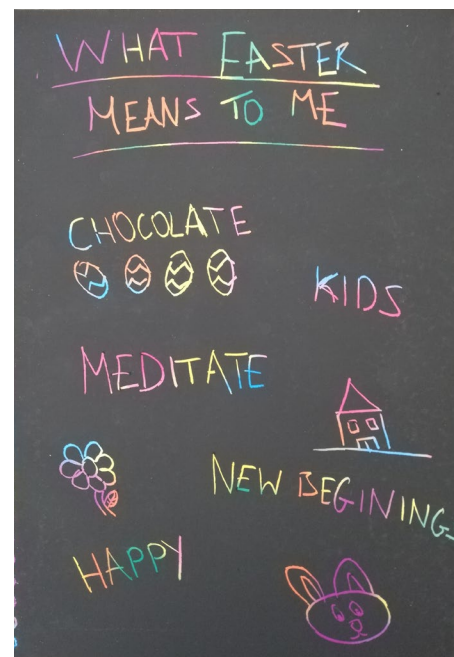 WHAT EASTER
MEANS TO ME
CHOCOLATE
KIDS
MEDITATE
NEW BEGINING
HAPPY